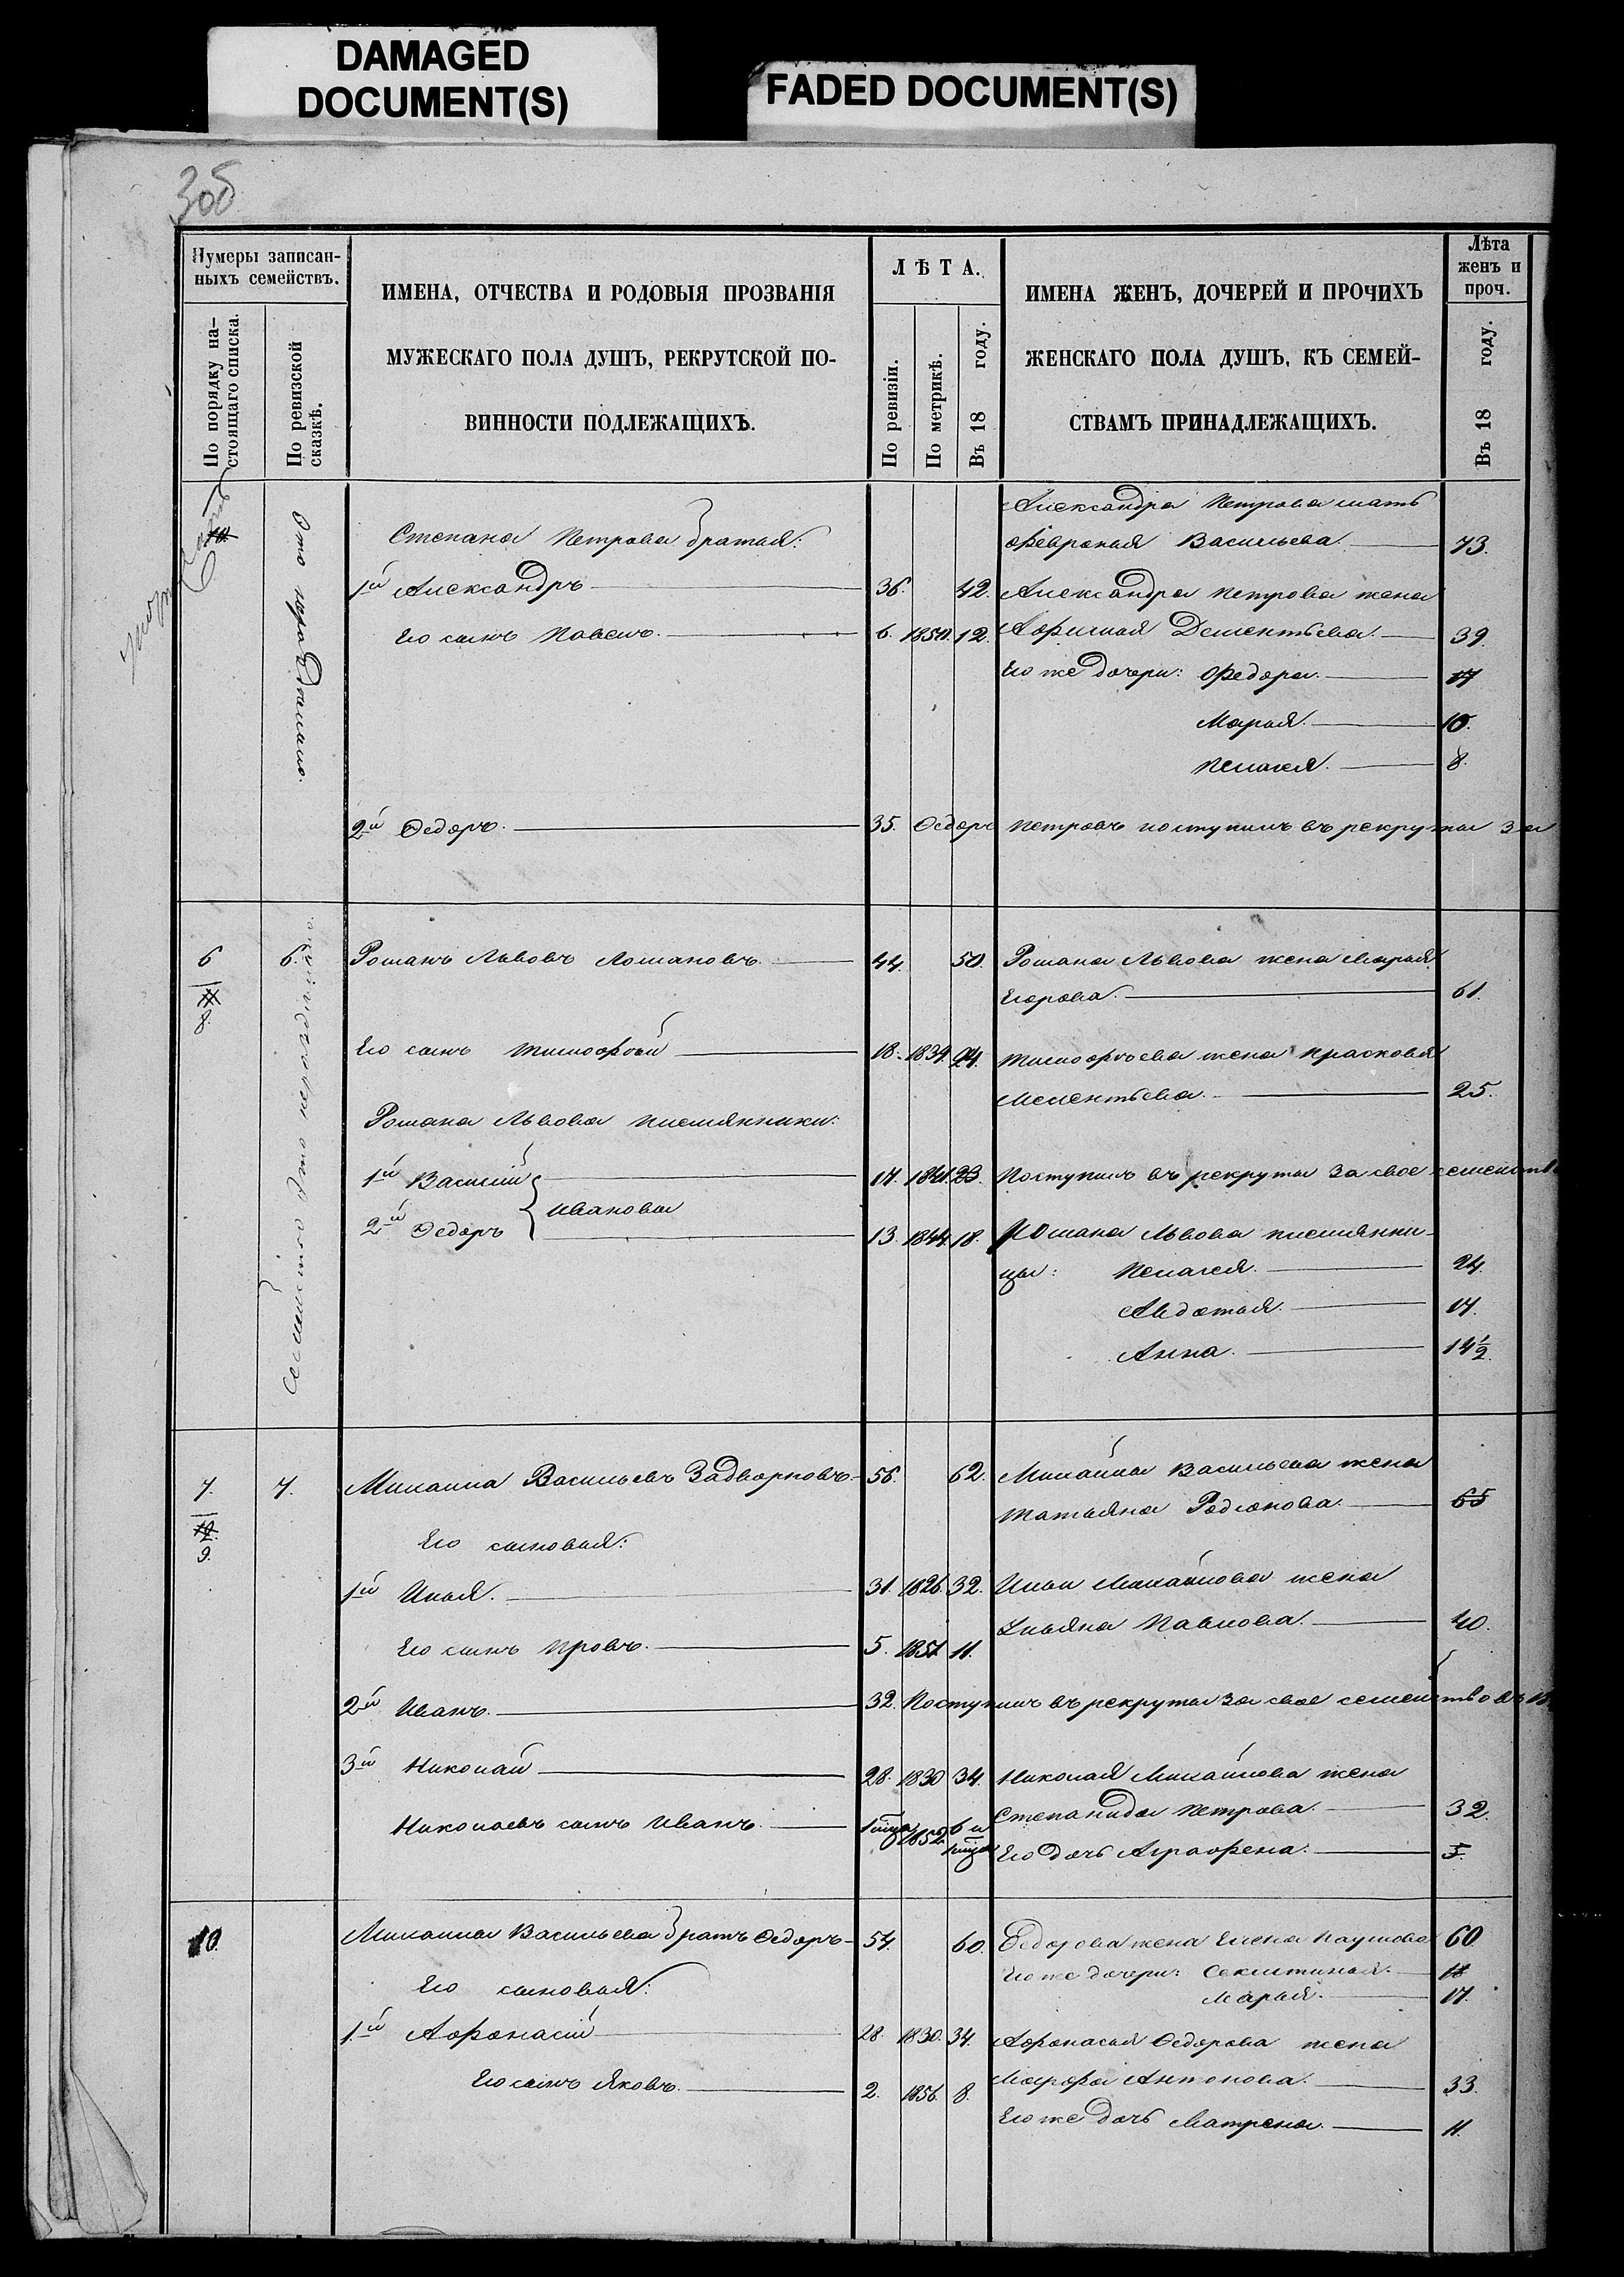 DAMAGED
DOCUMENT(S)
FADED DOCUMENT(S)
Нумеры записан-
ныхъ семействъ.
По порядку на-
стоящаго списка.
По ревизской
сказкѣ.
ИМЕНА, ОТЧЕСТВА И РОДОВЫЯ ПРОЗВАНІЯ
МУЖЕСКАГО ПОЛА ДУШЪ, РЕКРУТСКОЙ ПО-
ВИННОСТИ ПОДЛЕЖАЩИХЪ.
ЛѢТА.
По ревизіи.
По метрикѣ.
Въ 18 году.
ИМЕНА ЖЕНЪ, ДОЧЕРЕЙ И ПРОЧИХЪ
ЖЕНСКАГО ПОЛА ДУШЪ, КЪ СЕМЕЙ-
СТВАМЪ ПРИНАДЛЕЖАЩИХЪ.
Лѣта
женъ и
проч.
Въ 18 году.
Александра Петрова мать
Степана Петрова братья:
Февронья Васильева 73.
1й Александръ 36. 42. Александра Петрова жена
Его сынъ Павелъ. 6. 1850. 12. Афимья Дементьева. 39
Его же дочери: Федора. 17
Марья. 10.
Пелагея. 8.
2й Ѳедоръ. 35. Ѳедоръ Петровъ поступилъ въ рекруты за
6 6. Романъ Львовъ Ломановъ. 44. 50. Романа Львова жена Марья
8. Егорова. 61.
Его сынъ Тимофѣй 18. 1839. 24. Тимофѣева жена Прасковья
Мелентьева. 25.
Романа Львова племянники:
1й Василій 17. 1841. 23. Поступилъ въ рекруты за свое семейство
Ивановы
2й Ѳедоръ 13. 1844. 18. Романа Львова племянни-
цы: Пелагея. 24.
Авдотья. 17.
Анна. 14½.
Семейство это нераздѣльно.
7. 7. Михаила Васильевъ Задворновъ. 56. 62. Михайлы Васильева жена
9. Татьяна Родіонова. 65
Его сыновья:
1й Илья. 31. 1826. 32. Ильи Михайлова жена
Ульяна Павлова. 40.
Его сынъ Провъ. 5. 1851 11.
2й Иванъ. 32. Поступилъ въ рекруты за свое семейство въ
3й Николай 28. 1830 34. Николая Михайлова жена
Степанида Петрова. 32.
Николаевъ сынъ Иванъ. 1852 6 и
Его дочь Аграфена. 5.
10. Михаила Васильева братъ Ѳедоръ 54. 60. Ѳедорова жена Елена Наумова 60
Его же дочери: Секлитинья. 18
Его сыновья:
Марья. 17.
1й Афонасій 28. 1830. 34. Афонасья Ѳедорова жена
Марфа Антонова. 33.
Его сынъ Яковъ. 2. 1856. 8.
Его же дочь Матрена. 11.